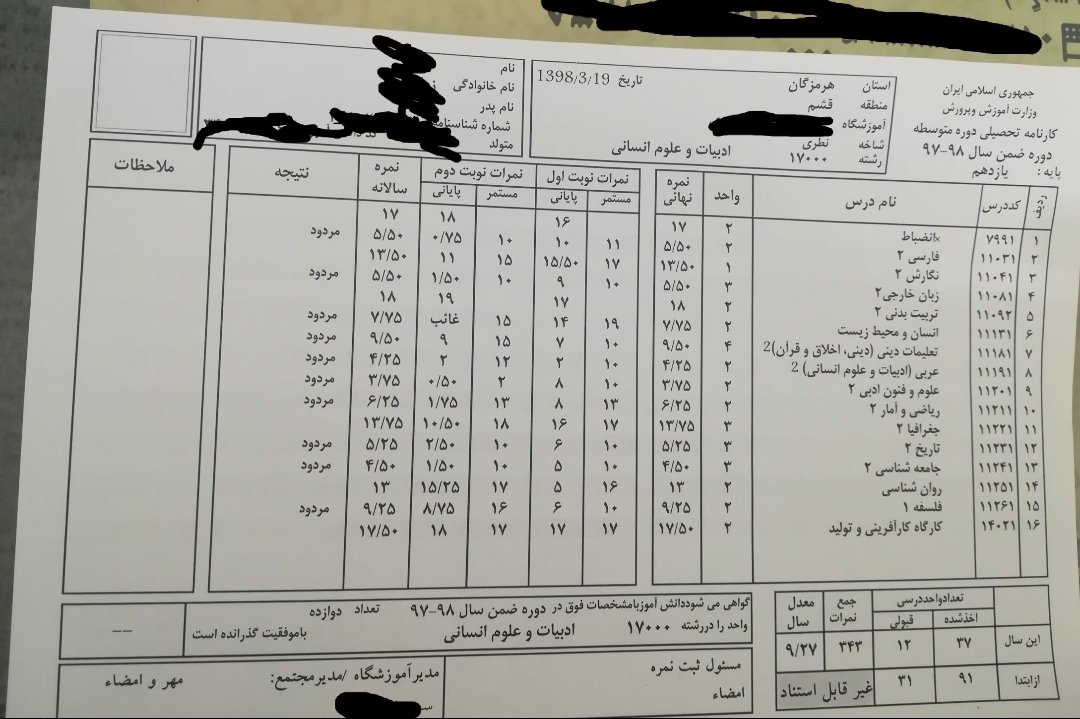 جمهوری اسلامی ایران
وزارت آموزش وپرورش
کارنامه تحصیلی دوره متوسطه
دوره ضمن سال ۹۸-۹۷
پایه: یازدهم
استان هرمزگان تاریخ 1398/3/19
منطقه قشم
آموزشگاه
شاخه نظری
رشته ۱۷۰۰۰ ادبیات و علوم انسانی
نام
نام خانوادگی
نام پدر
شماره شناسنامه
متولد
ردیف کددرس نام درس واحد نمره نهائی نمرات نوبت اول نمرات نوبت دوم نمره سالانه نتیجه ملاحظات
مستمر پایانی مستمر پایانی
۱ ۷۹۹۱ ×انضباط ۲ ۱۷ ۱۶ ۱۸ ۱۷
۲ ۱۱۰۳۱ فارسی ۲ ۲ ۵/۵۰ ۱۱ ۱۰ ۱۰ ۰/۷۵ ۵/۵۰ مردود
۳ ۱۱۰۴۱ نگارش ۲ ۱ ۱۳/۵۰ ۱۷ ۱۵/۵۰ ۱۵ ۱۱ ۱۳/۵۰
۴ ۱۱۰۸۱ زبان خارجی۲ ۳ ۵/۵۰ ۱۰ ۹ ۱۰ ۱/۵۰ ۵/۵۰ مردود
۵ ۱۱۰۹۲ تربیت بدنی ۲ ۲ ۱۸ ۱۷ ۱۹ ۱۸
۶ ۱۱۱۳۱ انسان و محیط زیست ۲ ۷/۷۵ ۱۹ ۱۴ ۱۵ غائب ۷/۷۵ مردود
۷ ۱۱۱۸۱ تعلیمات دینی (دینی، اخلاق و قرآن)2 ۴ ۹/۵۰ ۱۰ ۷ ۱۵ ۹ ۹/۵۰ مردود
۸ ۱۱۱۹۱ عربی (ادبیات و علوم انسانی) 2 ۲ ۴/۲۵ ۱۰ ۲ ۱۲ ۲ ۴/۲۵ مردود
۹ ۱۱۲۰۱ علوم و فنون ادبی ۲ ۲ ۳/۷۵ ۱۰ ۸ ۲ ۰/۵۰ ۳/۷۵ مردود
۱۰ ۱۱۲۱۱ ریاضی و آمار ۲ ۲ ۶/۲۵ ۱۳ ۸ ۱۳ ۱/۷۵ ۶/۲۵ مردود
۱۱ ۱۱۲۲۱ جغرافیا ۲ ۳ ۱۳/۷۵ ۱۷ ۱۶ ۱۸ ۱۰/۵۰ ۱۳/۷۵
۱۲ ۱۱۲۳۱ تاریخ ۲ ۳ ۵/۲۵ ۱۰ ۶ ۱۰ ۲/۵۰ ۵/۲۵ مردود
۱۳ ۱۱۲۴۱ جامعه شناسی ۲ ۳ ۴/۵۰ ۱۰ ۵ ۱۰ ۱/۵۰ ۴/۵۰ مردود
۱۴ ۱۱۲۵۱ روان شناسی ۲ ۱۳ ۱۶ ۵ ۱۷ ۱۵/۲۵ ۱۳
۱۵ ۱۱۲۶۱ فلسفه ۱ ۲ ۹/۲۵ ۱۰ ۶ ۱۶ ۸/۷۵ ۹/۲۵ مردود
۱۶ ۱۴۰۲۱ کارگاه کارآفرینی و تولید ۲ ۱۷/۵۰ ۱۷ ۱۷ ۱۷ ۱۸ ۱۷/۵۰
تعدادواحددرسی جمع نمرات معدل سال
اخذشده قبولی
این سال ۳۷ ۱۲ ۳۴۳ ۹/۲۷
ازابتدا ۹۱ ۳۱ غیر قابل استناد
گواهی می شوددانش آموزبامشخصات فوق در دوره ضمن سال ۹۸-۹۷ تعداد دوازده
واحد را دررشته ۱۷۰۰۰ ادبیات و علوم انسانی باموفقیت گذرانده است
--
مسئول ثبت نمره
امضاء
مدیرآموزشگاه /مدیرمجتمع:
مهر و امضاء